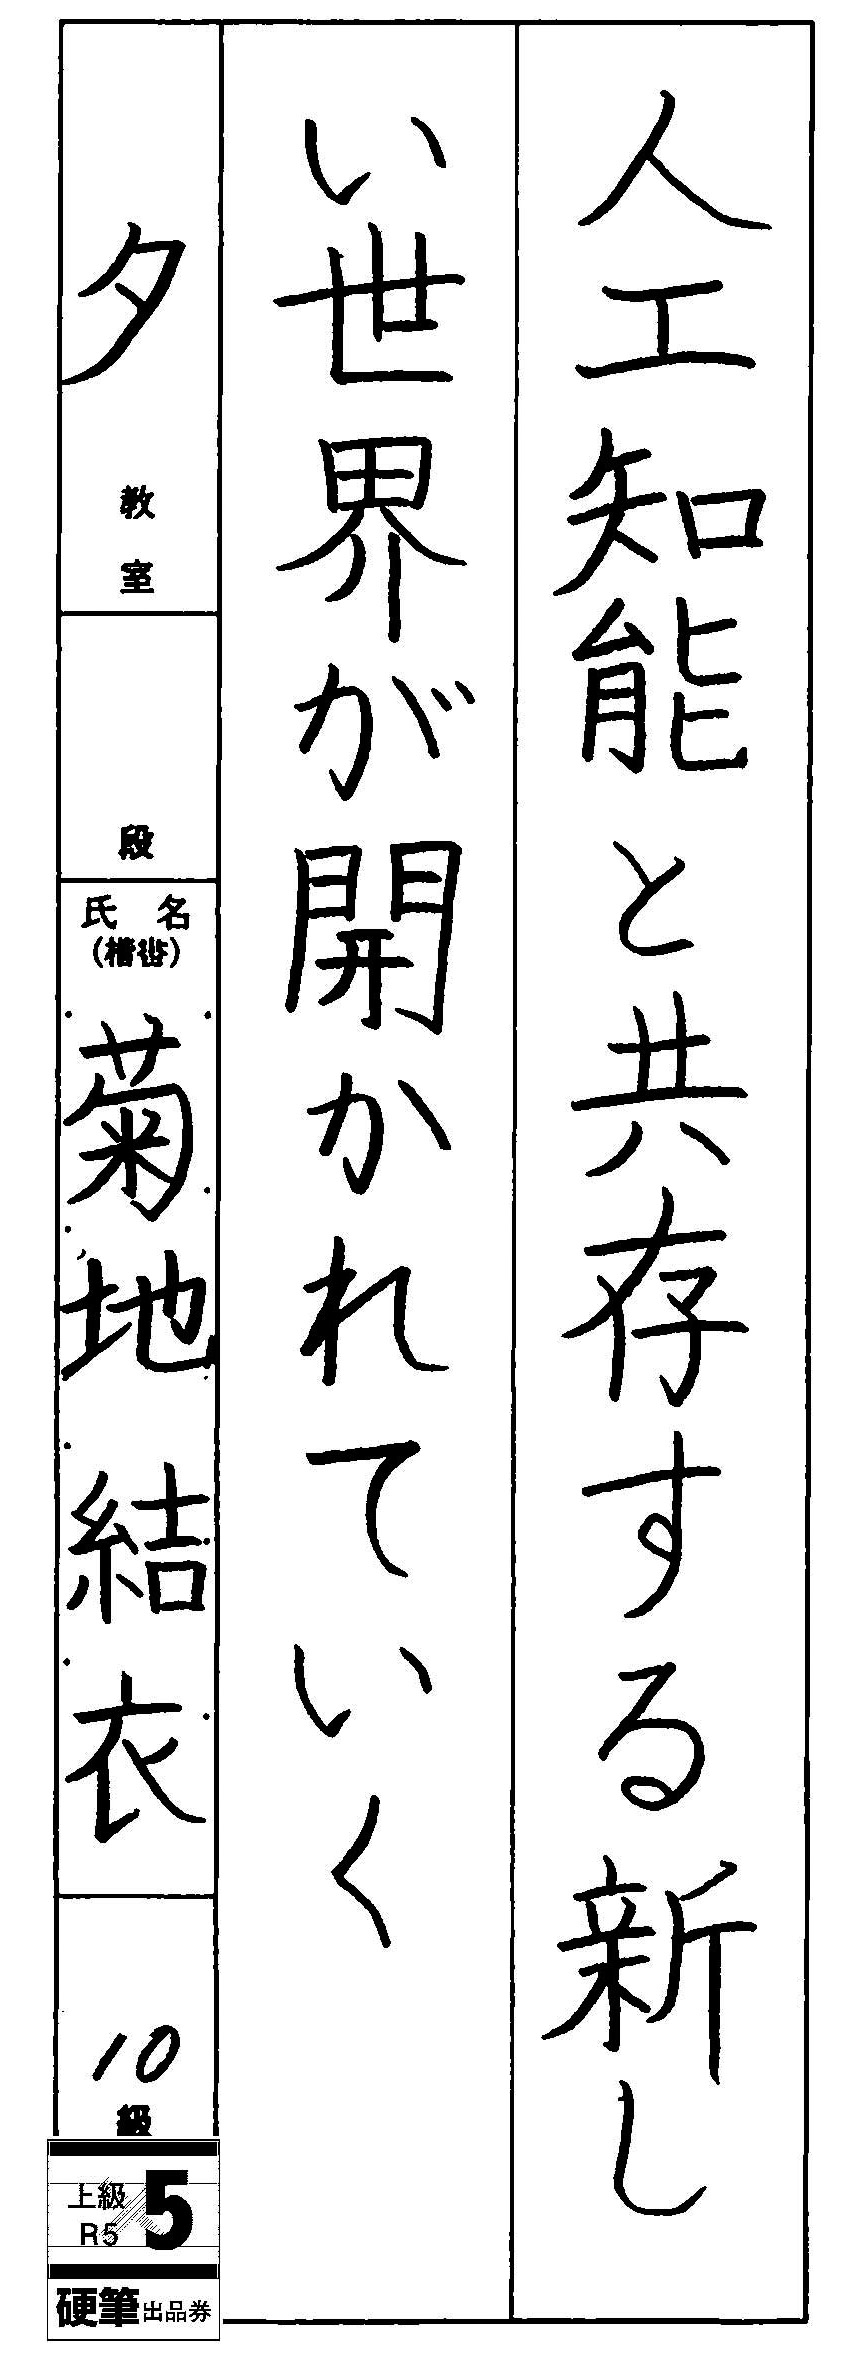 人工知能と共存する新し
い世界が開かれていく
夕
教室
段
氏名
(楷書)
菊地結衣
10
級
上級
R5
5
硬筆出品券